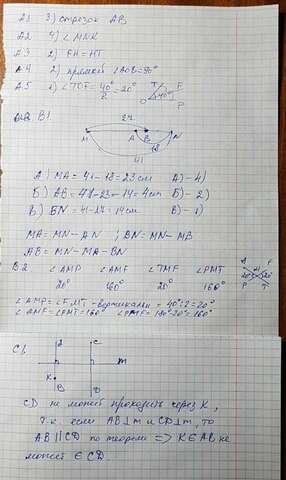 А1 3) отрезок АВ
А2 4) ∠MNK
А3 2) EH = HT
А4 2) прямой ∠AOB = 90°
А5 1) ∠TOF = 40°/2 = 20°
T F
40°
O P
B1
27
M A B N
18
41
А) MA = 41-18 = 23 см А) - 4)
Б) AB = 41-23-14 = 4 см Б) - 2)
В) BN = 41-27 = 14 см В) - 1)
MA = MN - AN ; BN = MN - MB
AB = MN - MA - BN
B2 ∠AMP ∠AMF ∠TMF ∠PMT
20° 160° 20° 160°
A F
20° M 20°
P T
∠AMP = ∠FMT - вертикальн = 40°:2 = 20°
∠AMF = ∠PMT = 160° ∠AMF = 180°-20° = 160°
C1
C
m
K
B D
CD не может проходить через K,
т.к. если AB⊥m и CD⊥m, то
AB || CD по теореме => K∈AB не
может ∈ CD.